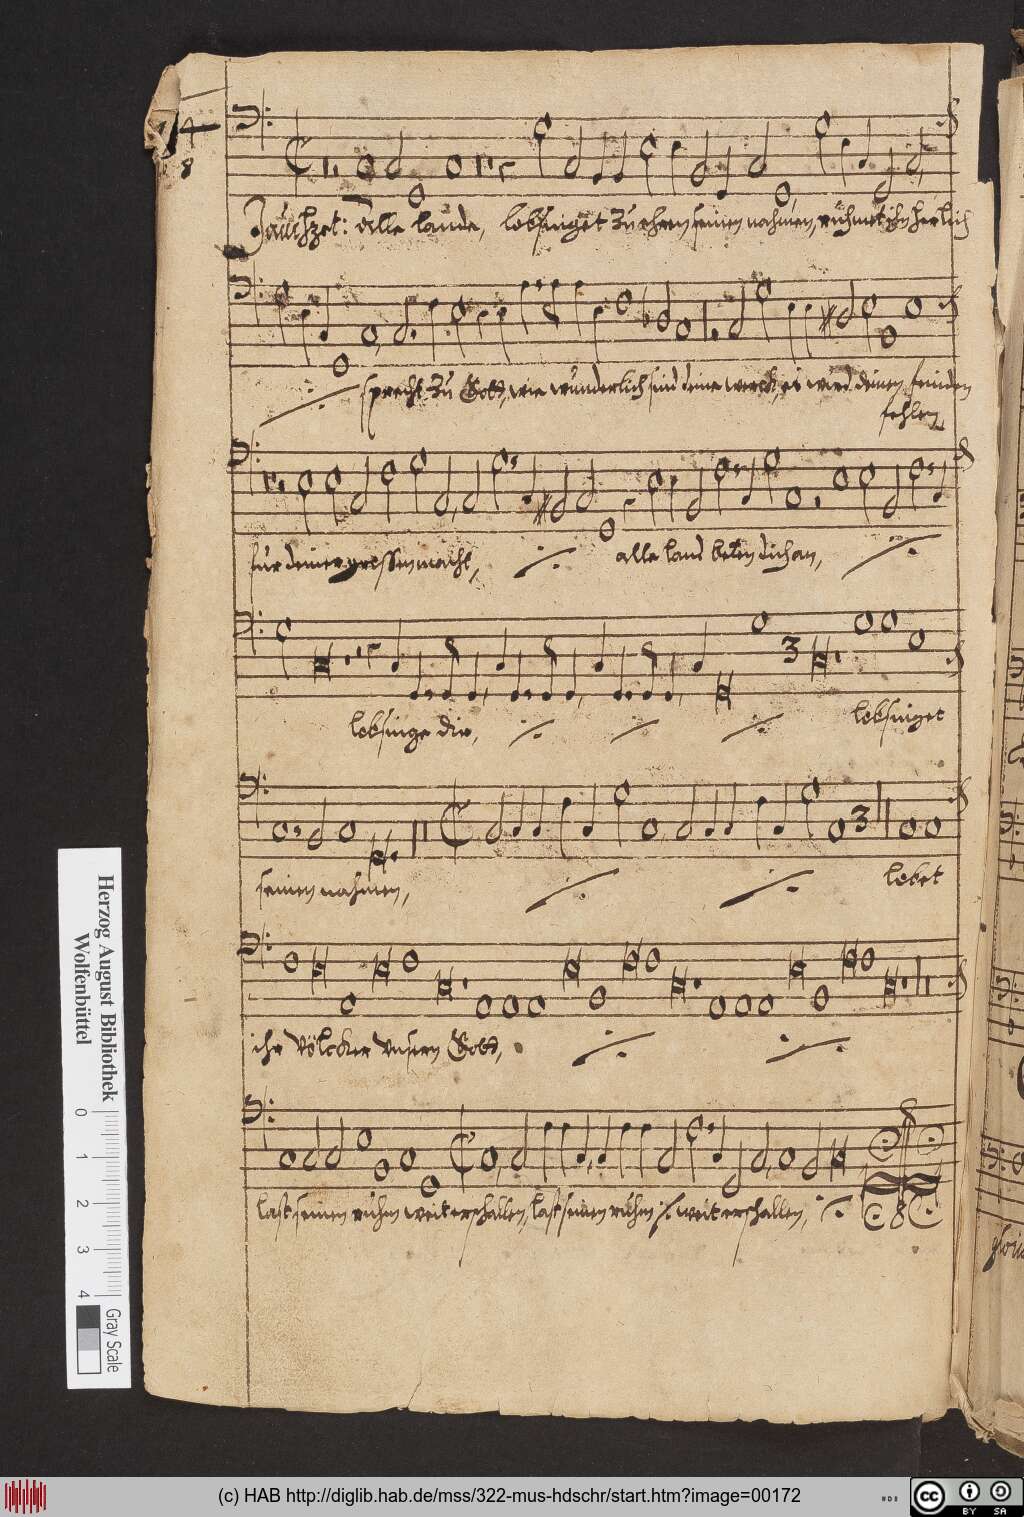 8
Jauchzet: Alle lande, lobsinget zu ehren seinen nahmen, rühmet ihn herlich
sprecht zu Gott, wie wunderlich sind deine werck, es wird deinen feinden
fehlen
für deiner grossen macht, alle land beten dich an,
3
lobsinge dir, lobsinget
3
seinen nahmen, lobet
ihr Völcker unsern Gott,
last seinen ruhm weit erschallen, last seinen ruhm weit erschallen,
Herzog August Bibliothek
Wolfenbüttel
0 1 2 3 4
Gray Scale
(c) HAB http://diglib.hab.de/mss/322-mus-hdschr/start.htm?image=00172
HDB
cc
BY SA